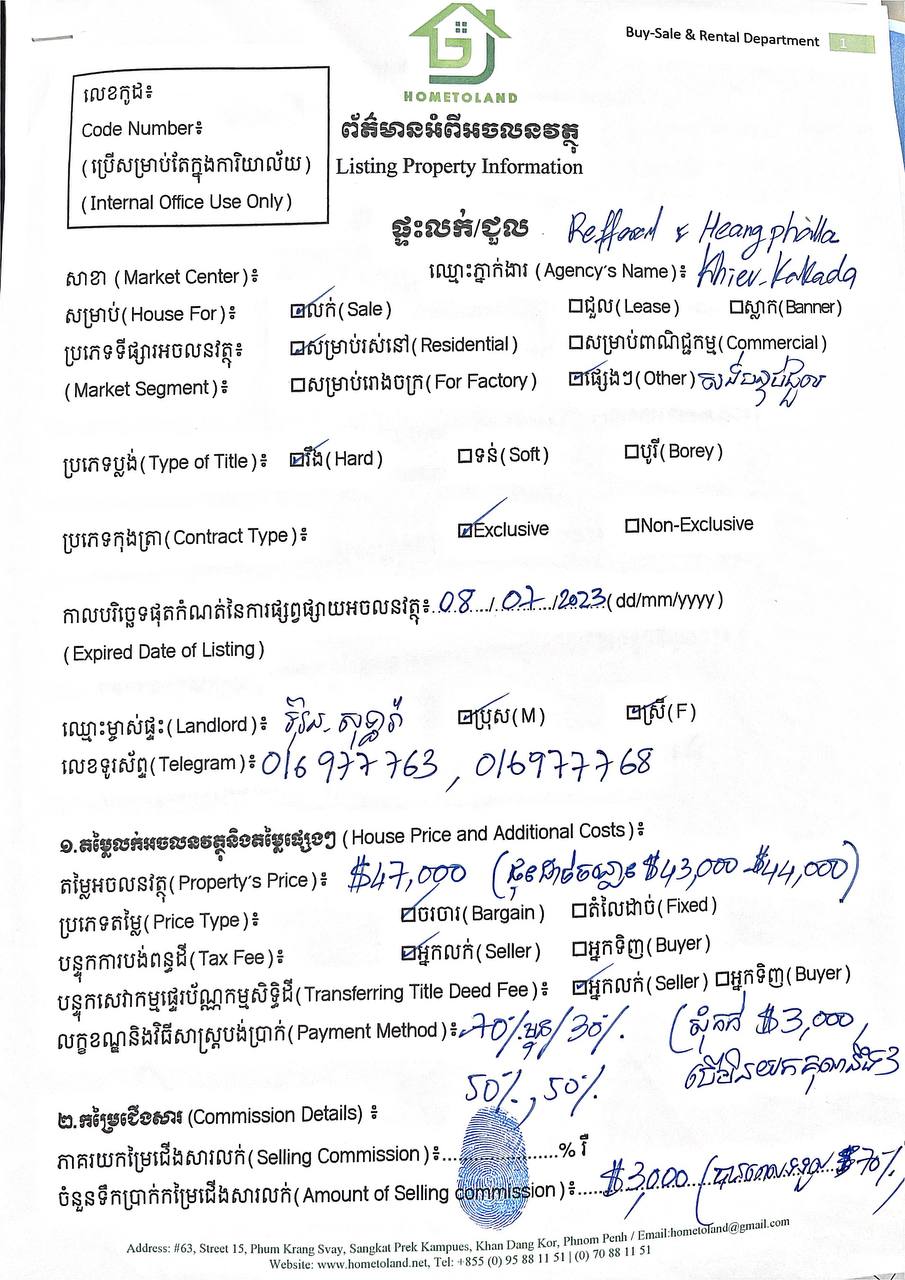 Buy-Sale & Rental Department 1
HOMETOLAND
លេខកូដ៖
Code Number៖
(ប្រើសម្រាប់តែក្នុងការិយាល័យ)
(Internal Office Use Only)
ព័ត៌មានអំពីអចលនវត្ថុ
Listing Property Information
ផ្ទះលក់/ជួល
Heangphalla
សាខា (Market Center)៖ ឈ្មោះភ្នាក់ងារ (Agency's Name)៖ Khiev Kakada
សម្រាប់(House For)៖ ☑លក់(Sale) ☐ជួល(Lease) ☐ស្លាក(Banner)
ប្រភេទទីផ្សារអចលនវត្ថុ៖ ☑សម្រាប់រស់នៅ(Residential) ☐សម្រាប់ពាណិជ្ជកម្ម(Commercial)
(Market Segment)៖ ☐សម្រាប់រោងចក្រ(For Factory) ☑ផ្សេងៗ(Other) សង់បន្ទប់ជួល
ប្រភេទប្លង់(Type of Title)៖ ☑រឹង(Hard) ☐ទន់(Soft) ☐បូរី(Borey)
ប្រភេទកុងត្រា(Contract Type)៖ ☑Exclusive ☐Non-Exclusive
កាលបរិច្ឆេទផុតកំណត់នៃការផ្សព្វផ្សាយអចលនវត្ថុ៖ 08 / 07 / 2023 (dd/mm/yyyy)
(Expired Date of Listing)
ឈ្មោះម្ចាស់ផ្ទះ(Landlord)៖ ☑ប្រុស(M) ☑ស្រី(F)
លេខទូរស័ព្ទ(Telegram)៖ 016 977 763 , 016977768
១.តម្លៃលក់អចលនវត្ថុនិងតម្លៃផ្សេងៗ (House Price and Additional Costs)៖
តម្លៃអចលនវត្ថុ(Property's Price)៖ $47,000 ( $43,000 - $44,000)
ប្រភេទតម្លៃ(Price Type)៖ ☑ចរចារ(Bargain) ☐តំលៃដាច់(Fixed)
បន្ទុកការបង់ពន្ធដី(Tax Fee)៖ ☑អ្នកលក់(Seller) ☐អ្នកទិញ(Buyer)
បន្ទុកសេវាកម្មផ្ទេរប័ណ្ណកម្មសិទ្ធិដី(Transferring Title Deed Fee)៖ ☑អ្នកលក់(Seller) ☐អ្នកទិញ(Buyer)
លក្ខខណ្ឌនិងវិធីសាស្ត្របង់ប្រាក់(Payment Method)៖ 70% មុន/30% (សុំកក់ $3,000,
បើមិនយកគុណនឹង3
50%, 50%
២.កម្រៃជើងសារ (Commission Details) ៖
ភាគរយកម្រៃជើងសារលក់(Selling Commission)៖....................% រឺ
ចំនួនទឹកប្រាក់កម្រៃជើងសារលក់(Amount of Selling commission)៖ $3,000 (បានពេលទទួល 70%)
Address: #63, Street 15, Phum Krang Svay, Sangkat Prek Kampues, Khan Dang Kor, Phnom Penh / Email:hometoland@gmail.com
Website: www.hometoland.net, Tel: +855 (0) 95 88 11 51 | (0) 70 88 11 51